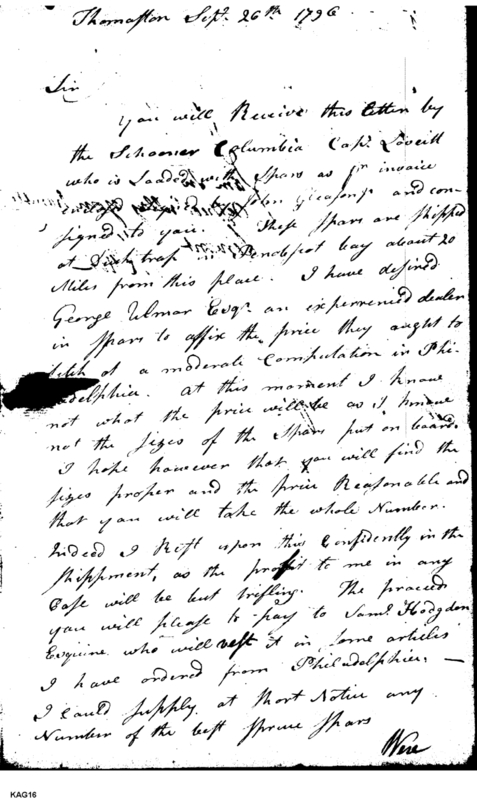 Thomaston Sept. 26th 1796
Sir
You will Receive this letter by
the Schooner Columbia Capt. Lovett
who is Loaded with Spars as pr invoice
enclosed signed by John Gleason and con-
signed to you. These Spars are shipped
at Duck trap Penobspot bay about 20
Miles from this place. I have desired
George Ulmar Esqr. an experrenied dealer
in Spars to affix the price they aught to
fetch at a moderate Computation in Phi-
ladelphia. At this moment I know
not what the price will be as I know
not the sizes of the Spars put on board.
I hope however that you will find the
sizes proper and the price Reasonable and
that you will take the whole Number.
Indeed I Rest upon this Confidently in the
Shippment, as the profit to me in any
Case will be but trifling. The proceeds
you will please to pay to Saml. Hodgdon
Esquire who will vest it in some articles
I have ordered from Philadelphia. —
I could supply at short Notice any
Number of the best Spruce Spars
Were
KAG16